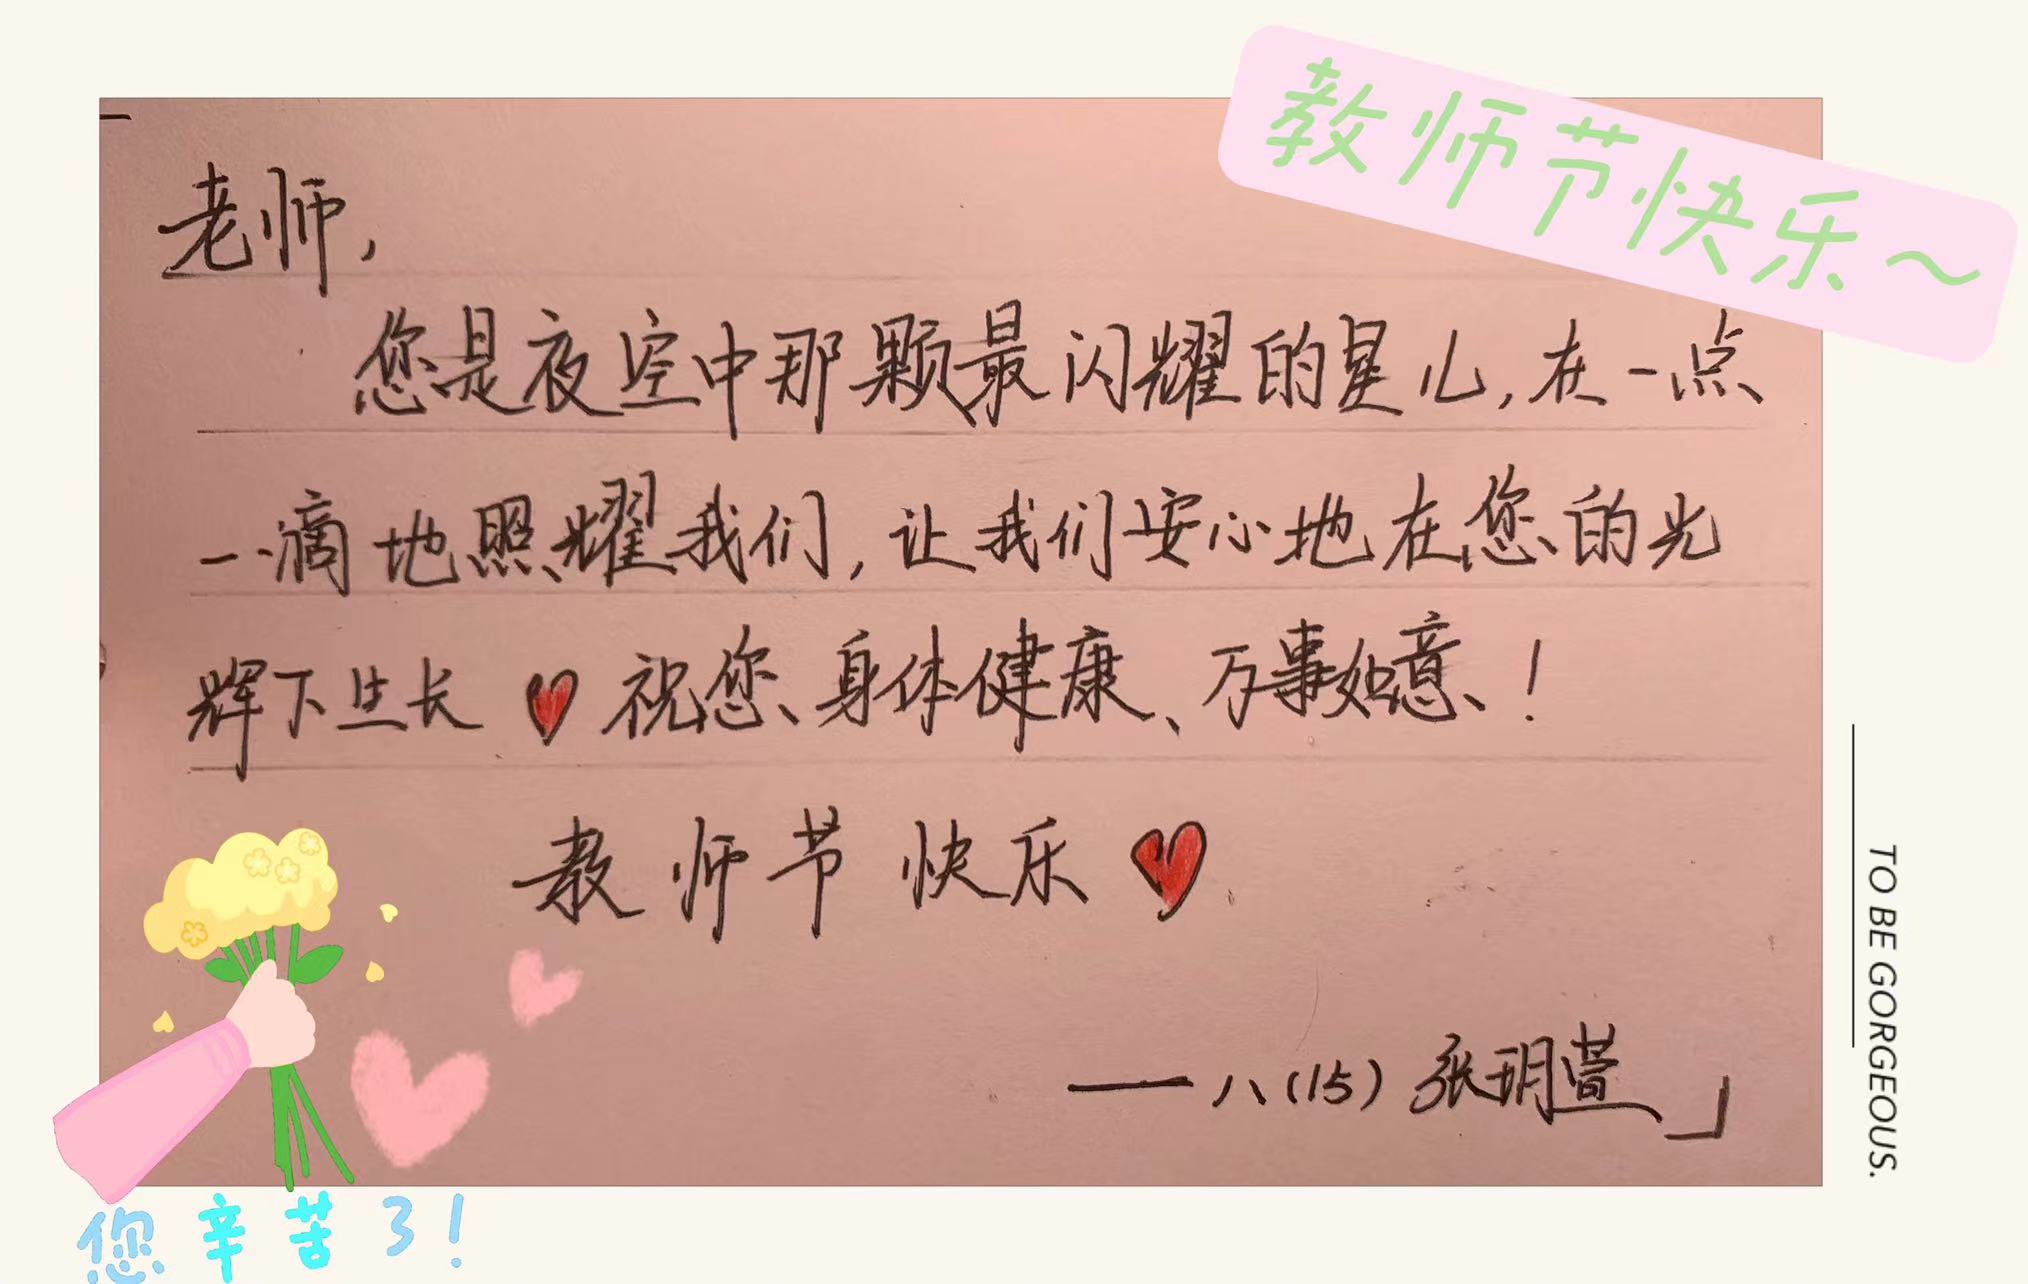 教师节快乐～
老师,
您是夜空中那颗最闪耀的星儿,在一点
一滴地照耀我们,让我们安心地在您的光
辉下生长 ♥ 祝您身体健康、万事如意!
教师节快乐 ♥
——八(15) 张玥萱」
TO BE GORGEOUS.
您辛苦了!